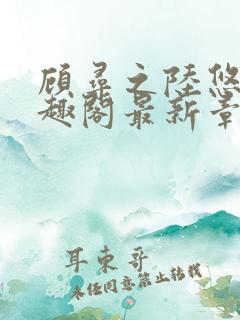 顾寻之陆悠
趣阁最新章
耳东哥
未经同意禁止转载